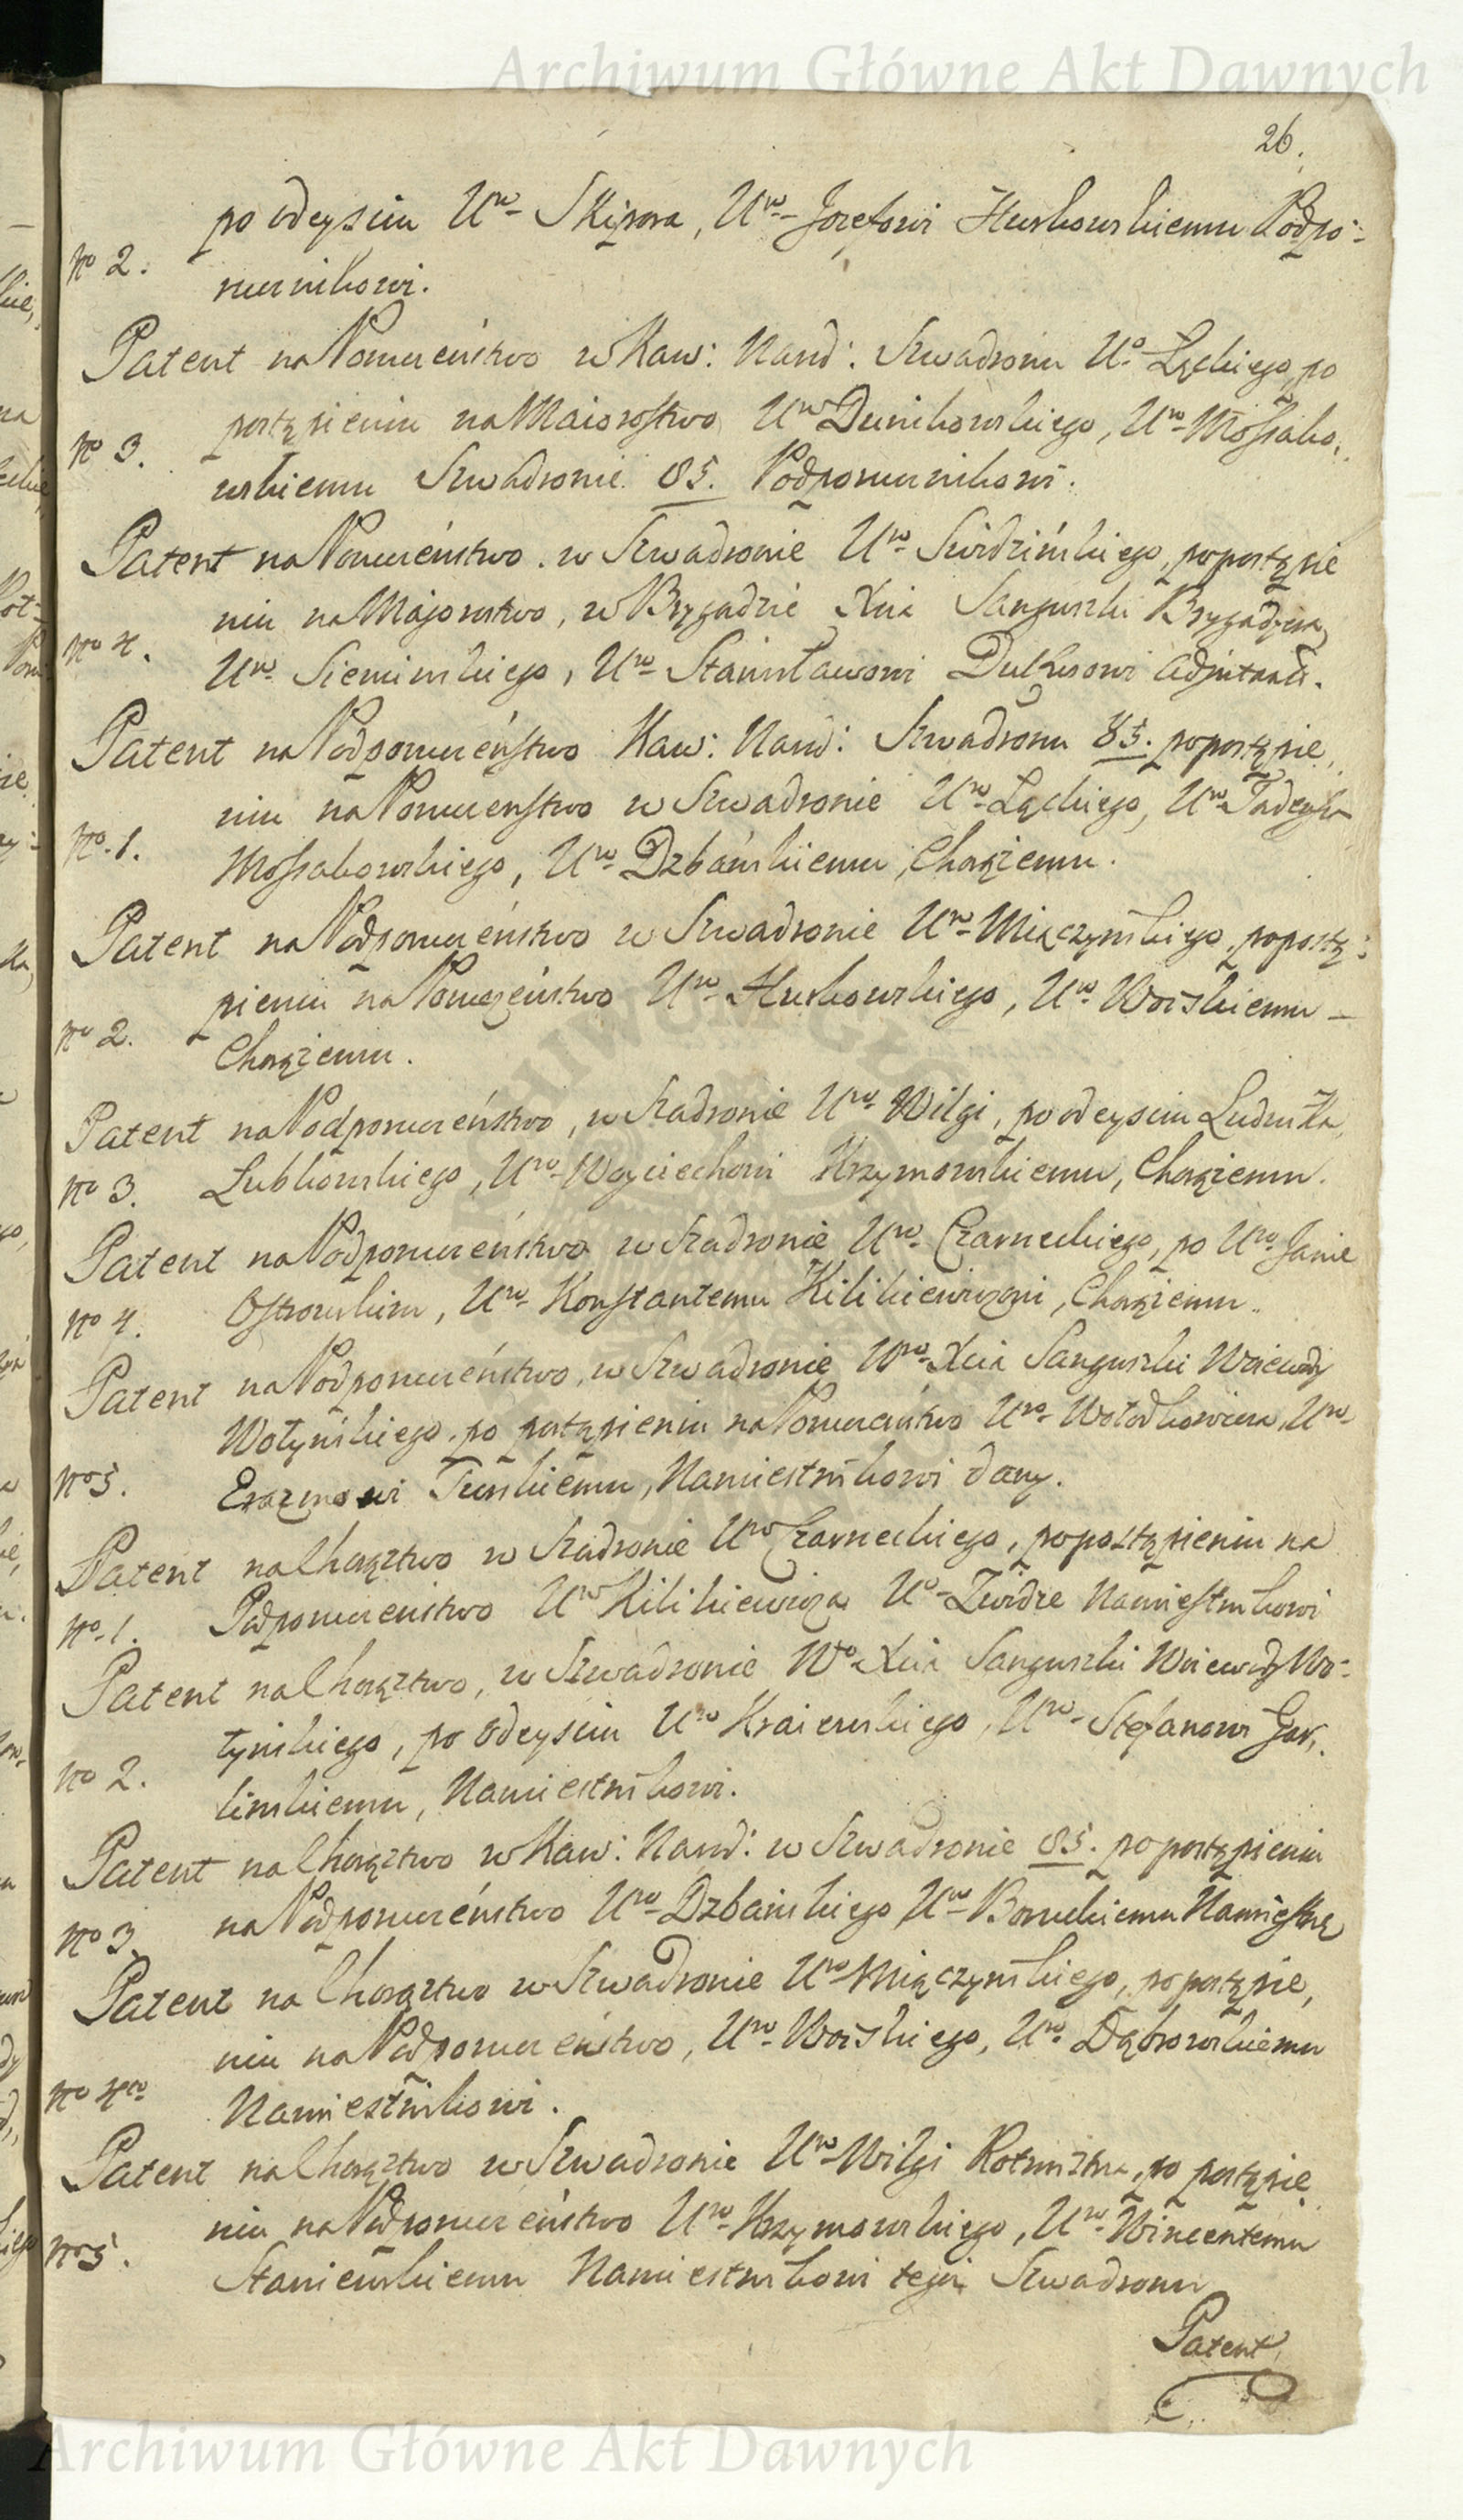 Archiwum Główne Akt Dawnych
26.
po odeyściu Uro Skipora, Uro Jozefowi Hurkowskiemu Podpo-
No 2. rucznikowi.
Patent na Porucznikostwo w Kaw: Narod: Szwadronu Uo Łąckiego, po
postąpieniu na Maiorostwo Uro Dunikowskiego, Uro Mossako,
No 3. wskiemu Szwadronie 85. Podporucznikowi.
Patent na Poruczeństwo w Szwadronie Uro Swidzińskiego, po postąpie
niu na Majorstwo, w Brygadzie Xcia Sanguszki Brygadyera
No 4. Uro Siemińskiego, Uro Stanisławowi Dulkusowi Adjutant.
Patent na Podporuczeństwo Kaw: Narod: Szwadronu 85. po postąpie,
niu na Poruczenstwo w Szwadronie Uro Łąckiego, Uro Tadeusza
No. 1. Mossakowskiego, Uro Dzbańskiemu, Chorążemu.
Patent na Podporuczeństwo w Szwadronie Uro Miączyńskiego, po postą:
pieniu na Poruczeństwo Uro Hurkowskiego, Uro Woiskiemu –
No 2. Chorążemu.
Patent na Podporuczeństwo, w Szadronie Uro Wilgi, po odeysciu Ludwika
No 3. Lubkowskiego, Uro Woyciechowi Krzymowskiemu, Chorążemu.
Patent na Podporuczeństwo w Szadronie Uro Czarneckiego, po Uro Janie
No 4. Ostrowskim, Uro Konstantemu Kilikiewiczowi, Chorążemu.
Patent na Podporuczeństwo, w Szwadronie Uro Xcia Sanguszki Woiewody
Wołyńskiego, po postąpieniu na Poruczeństwo Uro Wołodkowicza, Uro
No 5. Erazmowi Turskiemu, Namiestnikowi dany.
Patent na Chorąztwo w Szadronie Uro Czarneckiego, po postąpieniu na
No. 1. Podporuczenstwo Uro Kilikiewicza Uo Zwirdze Namiestnikowi
Patent na Chorąztwo, w Szwadronie Wo Xcia Sanguszki Woiewody Wo-
łyńskiego, po odeysciu Uro Kraiewskiego, Uro Stefanowi Gar,
No 2. lińskiemu, Namiestnikowi.
Patent na Chorąztwo w Kaw: Narod: w Szwadronie 85. po postąpieniu
No 3. na Podporuczeństwo Uro Dzbańskiego Uro Boruckiemu Namiestni
Patent na Chorąztwo w Szwadronie Uro Miączyńskiego, po postąpie,
niu na Podporuczeństwo, Uro Woiskiego, Uro Dąbrowskiemu
No 4to Namiestnikowi.
Patent na Chorąztwo w Szwadronie Uro Wilgi Rotmistrza, po postąpie
niu na Podporuczeństwo Uro Krzymowskiego, Uro Wincentemu
No 5. Staniewskiemu Namiestnikowi tegoż Szwadronu
Patent
Archiwum Główne Akt Dawnych